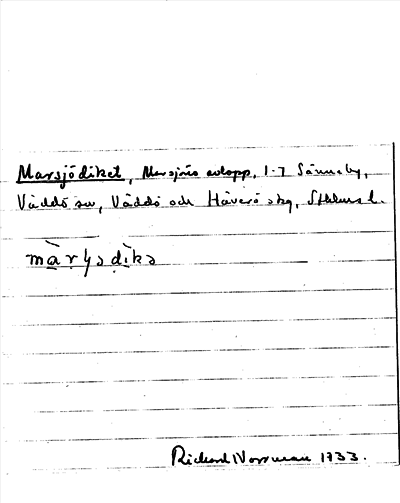 Marsjödiket, Marsjöns avlopp, 1-7 Sänneby,
Väddö sn, Väddö och Häverö skg, Sthlms l.
màrʃədìkə
Richard Norrman 1933.